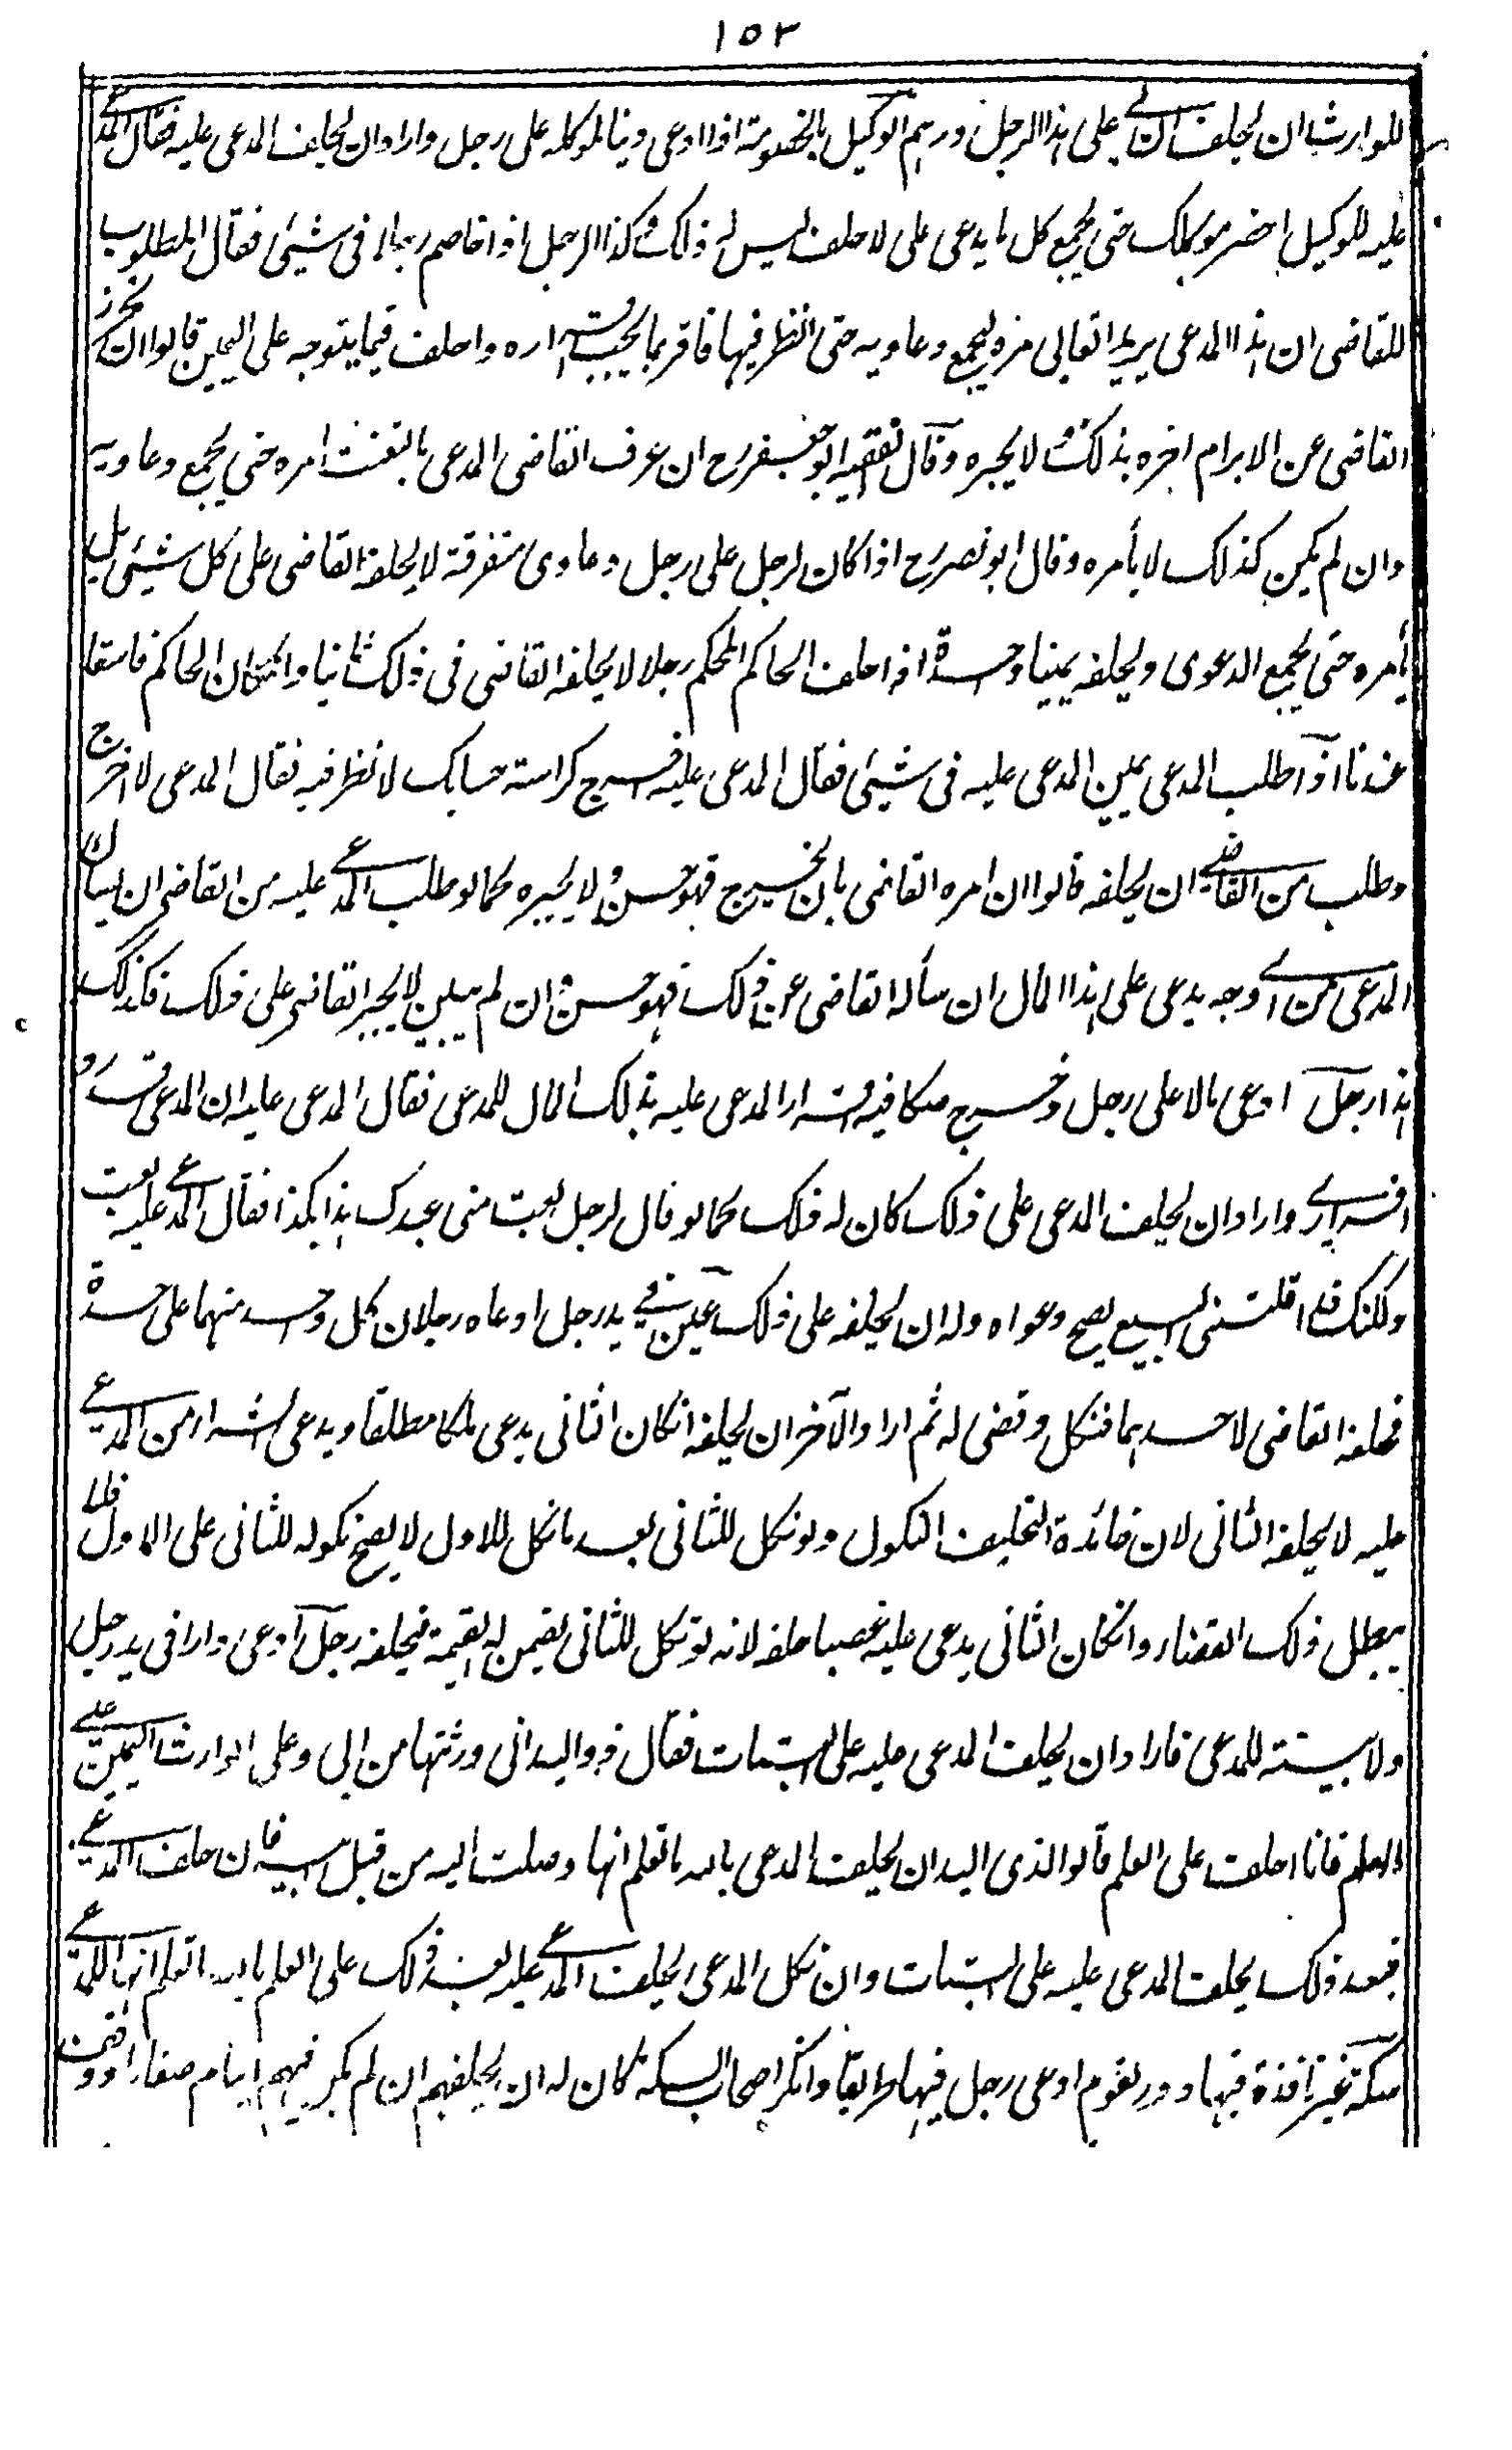 ١٥٣
للوارث ان يحلف الثاني على هذا الرجل درهم الوكيل بالخصومة اذا ادعى دينا لموكله على رجل واراد ان يحلف المدعى عليه فقال المدعى
عليه للوكيل احضر موكلك حتى يجمع كل ما يدعى على لا حلف ليس له ذلك وكذا الرجل اذا خاصم رجلا في شيئ فقال المطلوب
للقاضى ان هذا المدعى يريد اتعابى مره ليجمع دعاويه حتى انظر فيها فاقر بما يجب اقراره واحلف فيما يتوجه على اليمين قالوا ان عجز
القاضى عن الابرام اخره بذلك ولا يجبره وقال الفقيه ابو جعفر رح ان عرف القاضى المدعى بالتعنت امره حتى يجمع دعاويه
وان لم يكن كذلك لا يأمره وقال ابو نصر رح اذا كان لرجل على رجل دعاوى متفرقة لا يحلفه القاضى على كل شيئ بل
يأمره حتى يجمع الدعوى ويحلفه يمينا واحدة اذا حلف الحاكم المحكم رجلا لا يحلفه القاضى في ذلك ثانيا وانكان الحاكم فاسقا
عندنا اذا طلب المدعى يمين المدعى عليه في شيئ فقال المدعى عليه اخرج كراسته حسابك لا نظر فيه فقال المدعى لا اخرج
وطلب من القاضى ان يحلفه قالوا ان امره القاضى بان يخرج فهو حسن ولا يجبره كما لو طلب المدعى عليه من القاضى ان يسأل
المدعى من اى وجه يدعى على هذا المال ان سأله القاضى عن ذلك فهو حسن وان لم يبين لا يجبر القاضى على ذلك فكذلك
هذا رجل ادعى مالا على رجل واخرج صكا فيه اقرار المدعى عليه بذلك المال للمدعى فقال المدعى عليه ان المدعى قد رد
اقرارى واراد ان يحلف المدعى على ذلك كان له ذلك كما لو قال لرجل بعت منى عبدك هذا بكذا فقال المدعى عليه بعت
ولكنك قد اقلتنى البيع يصح دعواه وله ان يحلفه على ذلك عين في يد رجل ادعاه رجلان كل واحد منهما على حدة
فحلفه القاضى لاحدهما فنكل وقضى له ثم اراد الآخر ان يحلفه انكان الثانى يدعى ملكا مطلقا ويدعى الشراء من المدعى
عليه لا يحلفه الثانى لان فائدة التحليف النكول ولو نكل للثانى بعد ما نكل للاول لا يصح نكوله للثانى على الاول فلا
يبطل ذلك القضاء وانكان الثانى يدعى عليه غصبا حلفه لانه لو نكل للثانى يضمن له القيمة فيحلفه رجل ادعى دارا في يد رجل
ولا بينة للمدعى فاراد ان يحلف المدعى عليه على البتات فقال ذو اليد انى ورثتها من ابى وعلى الوارث اليمين على
العلم فانا احلف على العلم قالوا لذى اليد ان يحلف المدعى بالله ما تعلم انها وصلت اليه من قبل ابيه فان حلف المدعى
فبعد ذلك يحلف المدعى عليه على البتات وان نكل المدعى يحلف المدعى عليه بعد ذلك على العلم بالله ما تعلم انها للمدعى
سكة غير نافذة فيها دور لقوم ادعى رجل فيها طريقا وانكر اصحاب السكة كان له ان يحلفهم ان لم يكن فيهم ايتام صغار او وقف